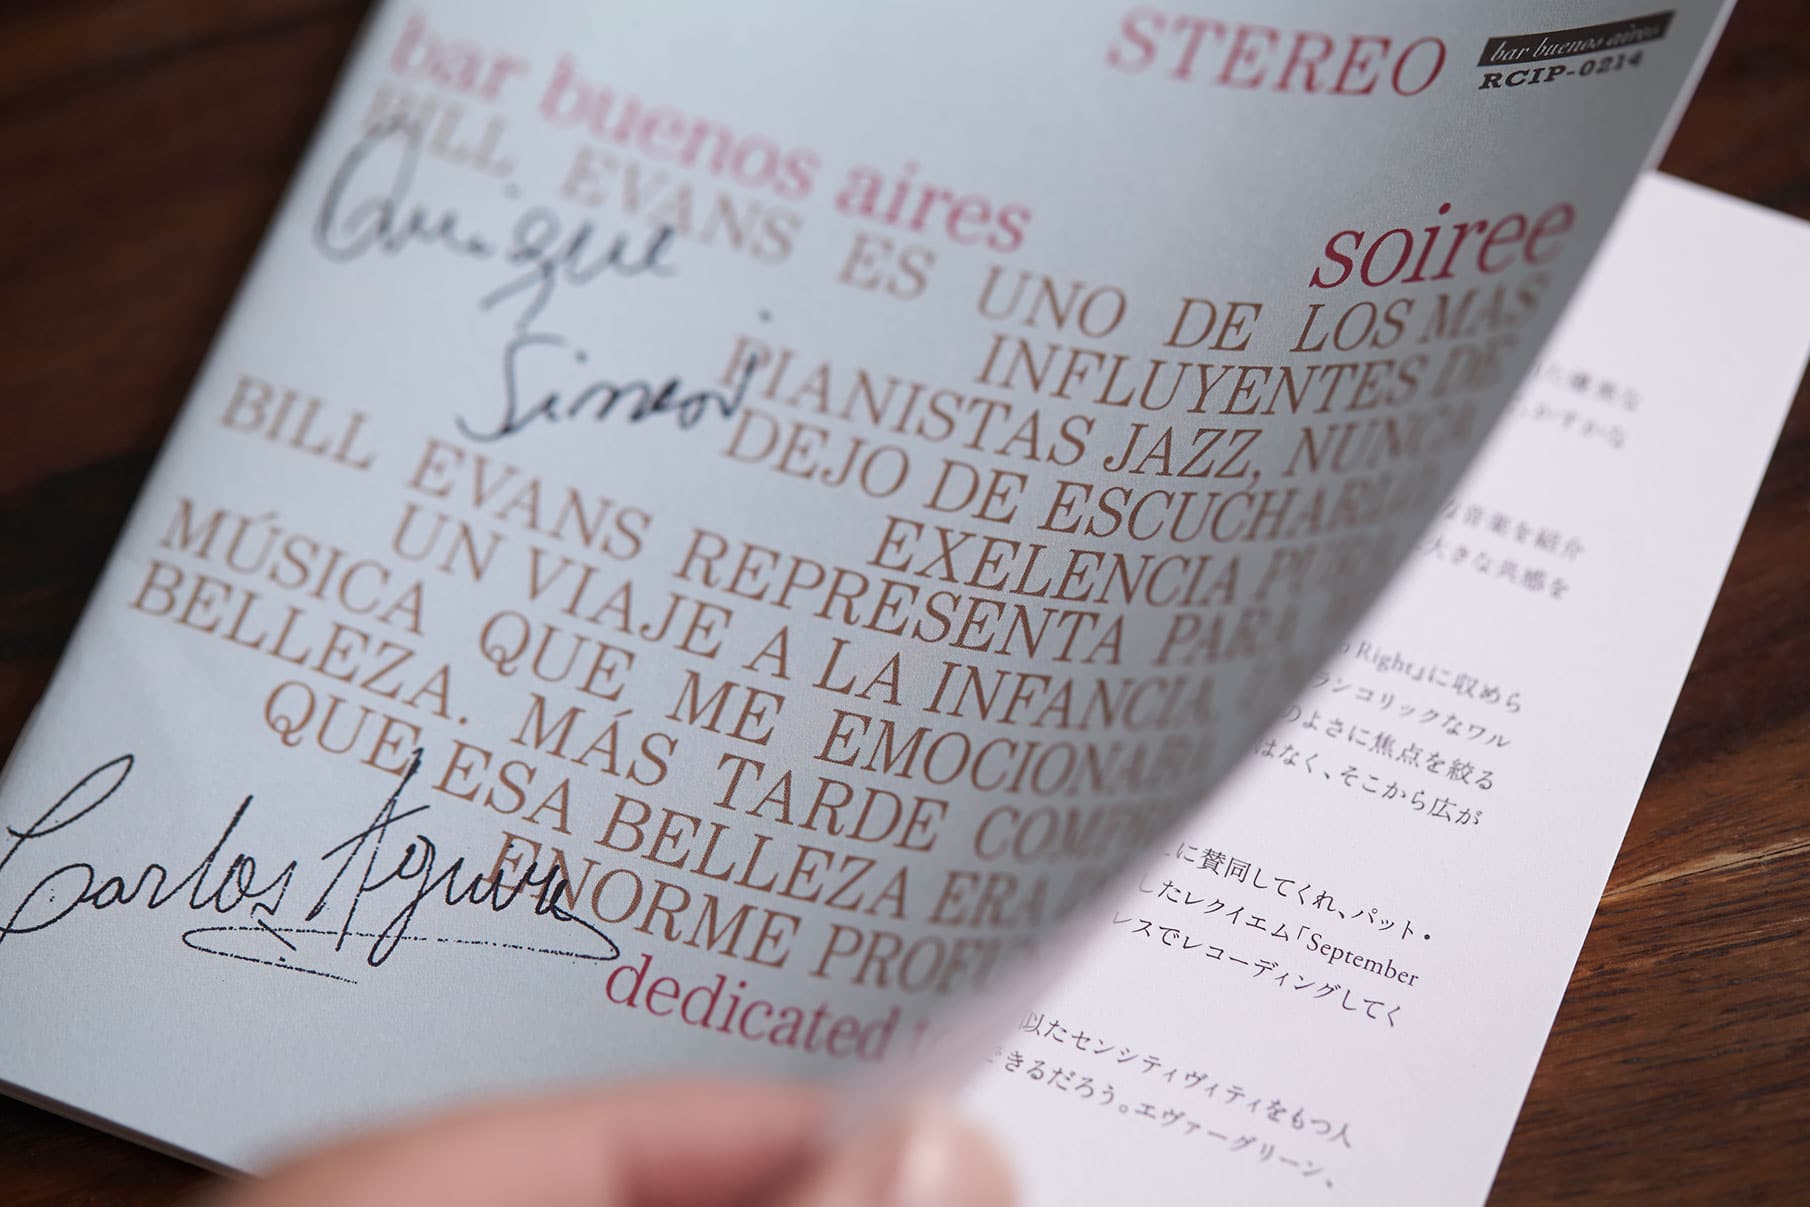 STEREO
bar buenos aires
RCIP-0214
bar buenos aires
soiree
BILL EVANS ES UNO DE LOS MAS
INFLUYENTES DE
PIANISTAS JAZZ, NUNCA
DEJO DE ESCUCHARLO
EXELENCIA PURA
BILL EVANS REPRESENTA PARA
UN VIAJE A LA INFANCIA. UN
MÚSICA QUE ME EMOCIONABA
BELLEZA. MÁS TARDE
QUE ESA BELLEZA ERA
ENORME PROFU
dedicated
Quique
Sinesi
Carlos Aguirre
かすかな
音楽を紹介
大きな共感を
Right』に収めら
ランコリックなワル
のよさに焦点を絞る
はなく、そこから広が
に賛同してくれ、パット・
したレクイエム「September
レスでレコーディングしてく
似たセンシティヴィティをもつ人
きるだろう。エヴァーグリーン、